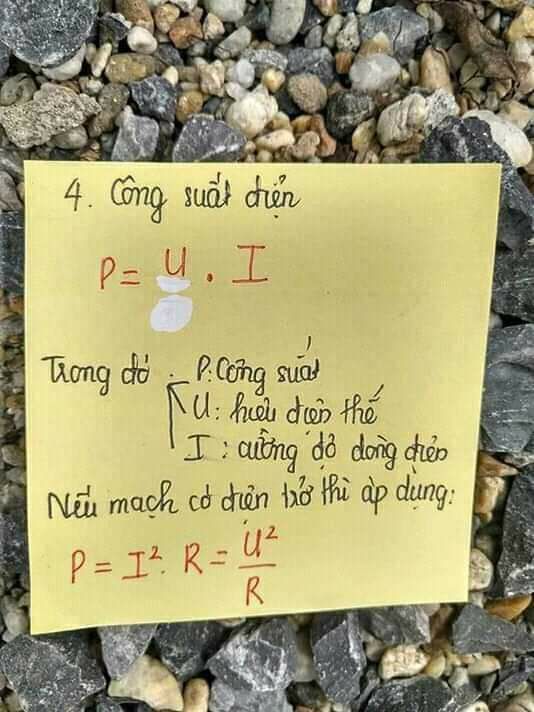 4. Công suất điện
P = U . I
Trong đó . P: Công suất
U: hiệu điện thế
I : cường độ dòng điện
Nếu mạch có điện trở thì áp dụng:
P = I². R = U²/R